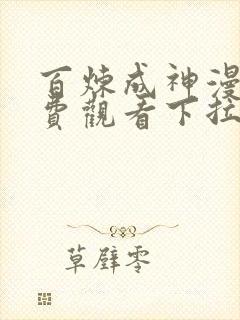 百炼成神漫
费觀看下拉
草壁零